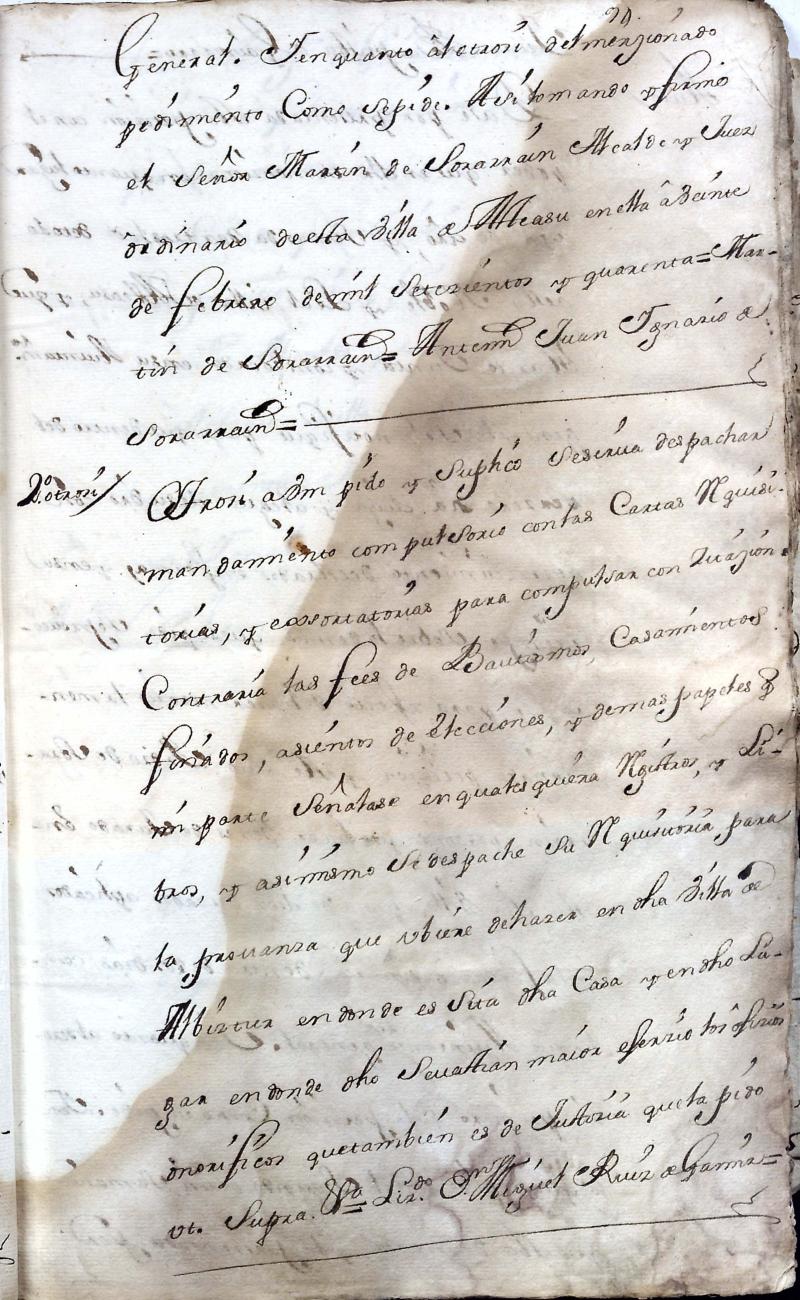 General. Ten quanto âl otrosi del menzionado
pedimento Como sepide. Asilo mando y firmó
el Señor Martin de Sorarrain Alcalde y Juez
ôrdinario de esta Villa de Alcasu en ella â Veinte
de febrero de mil Setezientos y quarenta = Mar-
tin de Sorarrain = Antemi Juan Ygnazio de
Sorarrain =
2º otrosi / Otrosi a Vm pido y Suplico Sesirva despachar
mandamiento compulsorio con las Cartas Rquisi-
torias, y exsortatorias para compulsar con Zitazion
Contraria las fees de Bautismos, Casamientos
foriados, asientos de elecciones, y demas papeles q
mi parte Señalase en qualesquiera Rgistros, y Li-
bros, y asimismo Se despache su Rquisitoria, para
la provanza que ubiere de hazer en dha Villa de
Albiztur en donde es Sita dha Casa y en dho Lu-
gar en donde dho Sevastian maior eserzio los ôfizios
onorificos que tambien es de Justizia que la pido
ut. Supra. Lizdo. Dn Miguel Ruiz de Gamiz =